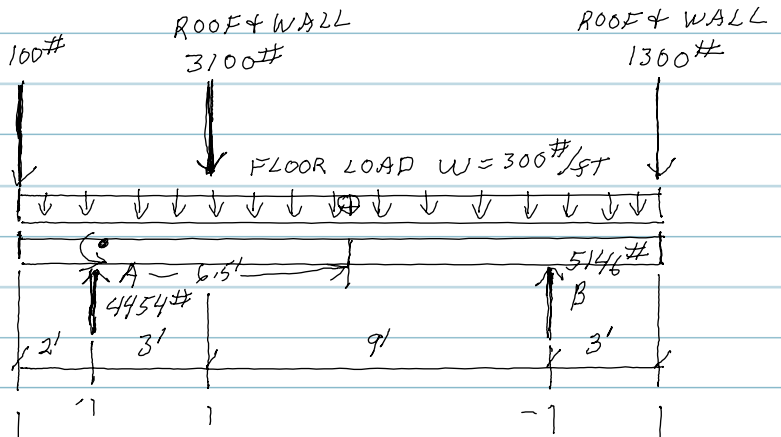 ROOF & WALL ROOF & WALL
100# 3100# 1300#
FLOOR LOAD W = 300#/FT
A 6.5' 5146#
4454# B
2' 3' 9' 3'